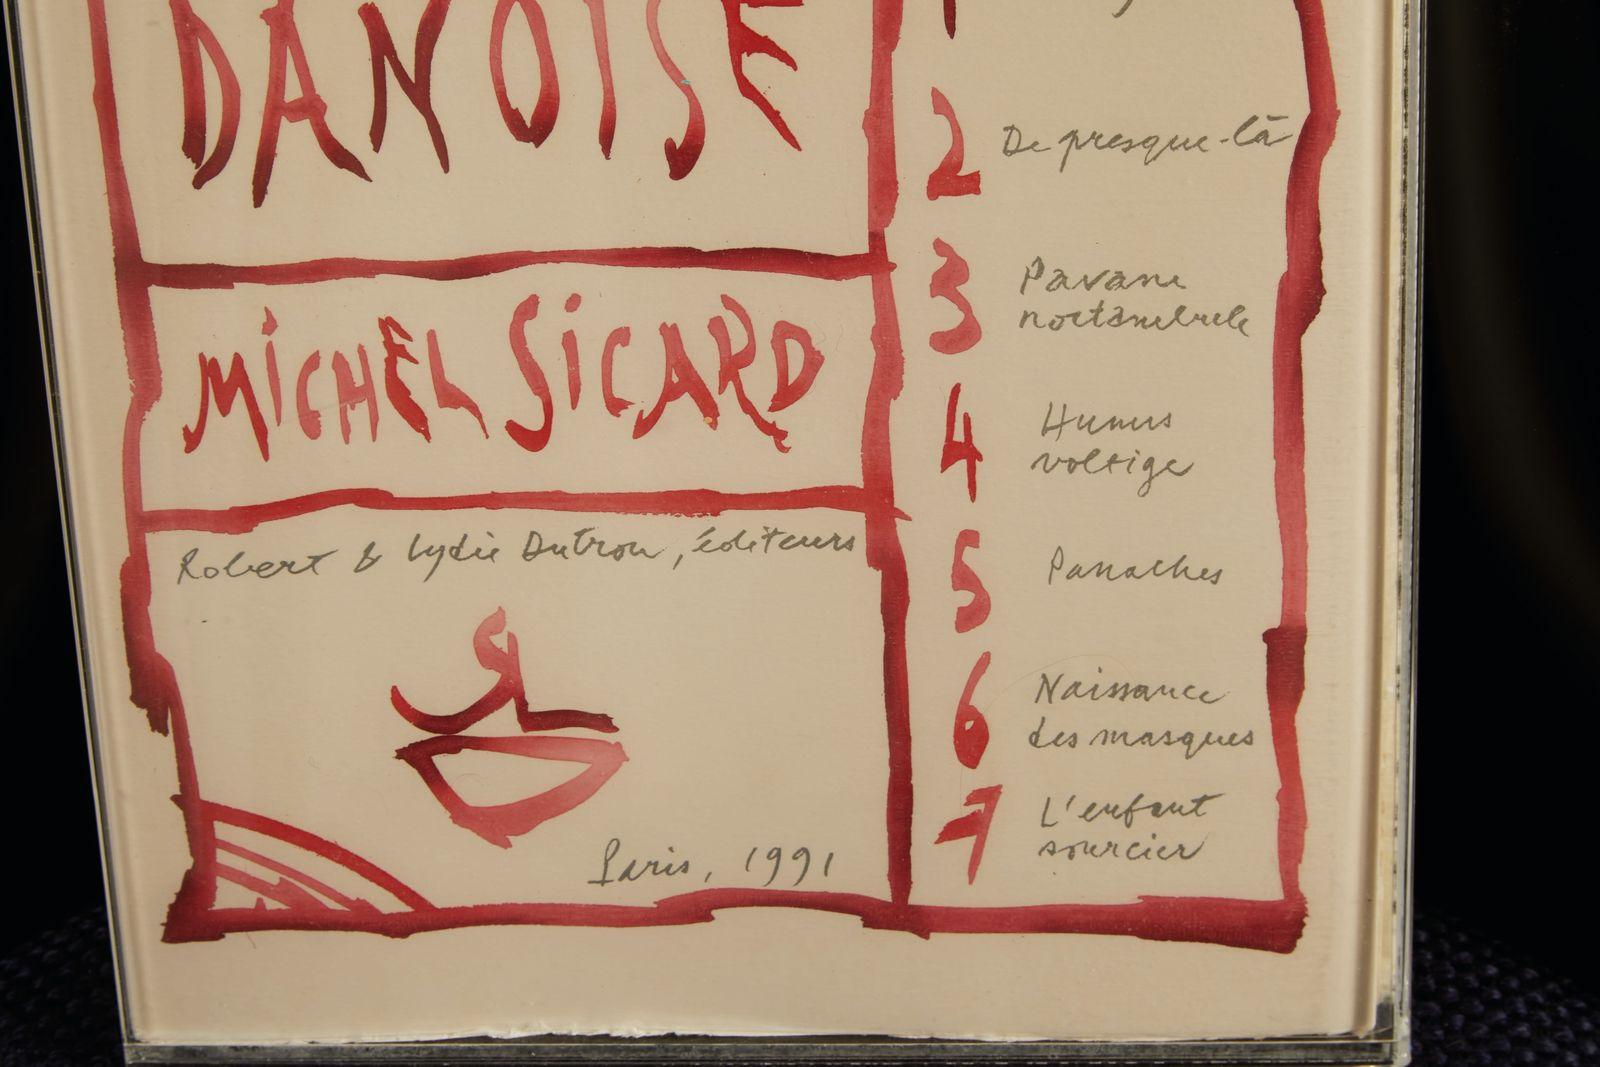 DANOISE
MICHEL SICARD
Robert & Lydie Dutrou, éditeurs
Paris, 1991
2 De presque-là
3 Pavane
noctambule
4 Humus
voltige
5 Panaches
6 Naissance
des masques
7 L'enfant
sourcier